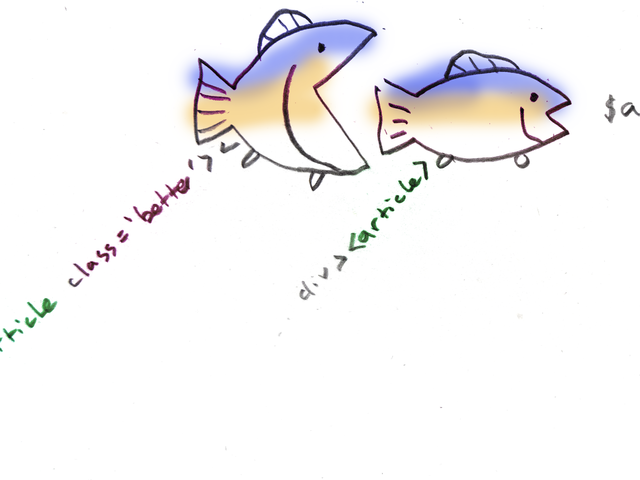 rticle class='better'>
div><article>
$a